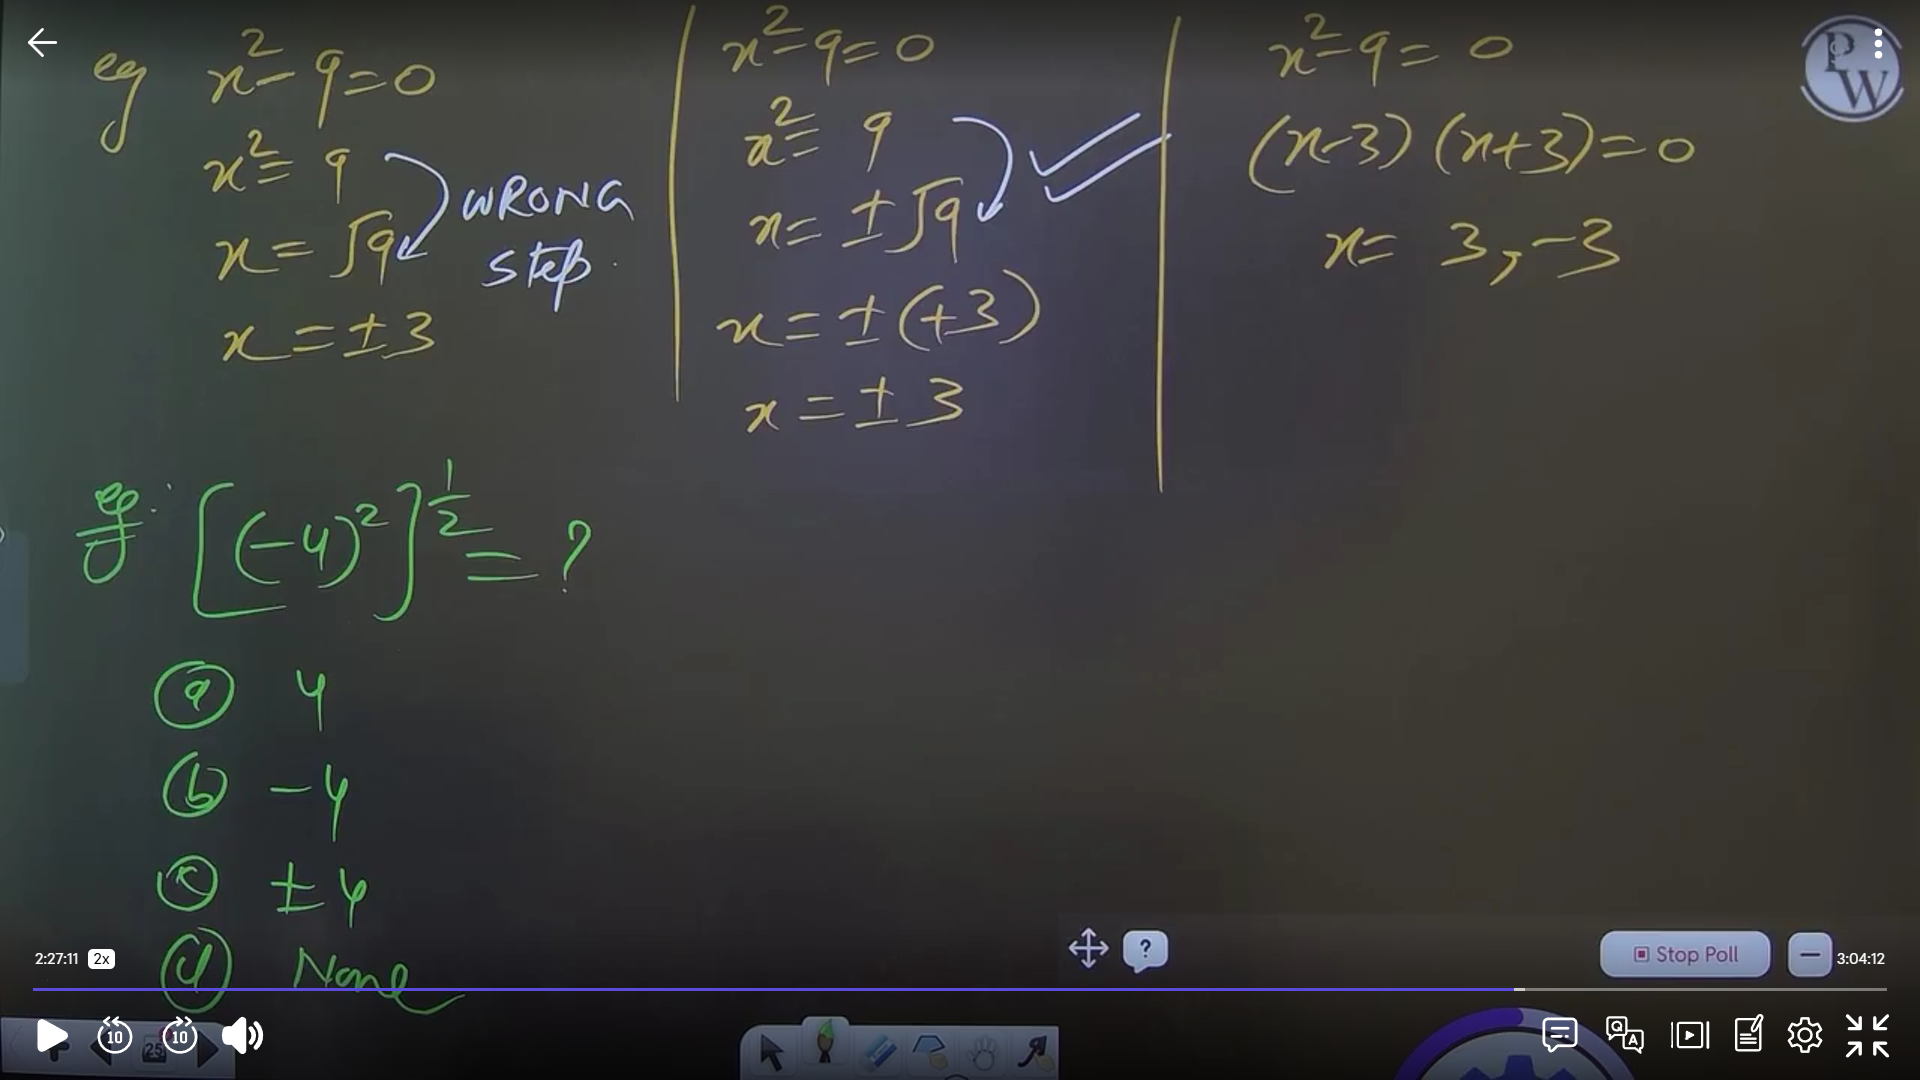 eg x²-9=0
x²= 9
x= √9
x=±3
WRONG
step
x²-9=0
x²= 9
x= ±√9
x=±(+3)
x=±3
x²-9= 0
(x-3) (x+3)=0
x= 3,-3
PW
eg: [(-4)²]^1/2 = ?
(a) 4
(b) -4
(c) ±4
(d) None
2:27:11 2x
?
Stop Poll
3:04:12
10
10
25
Q A